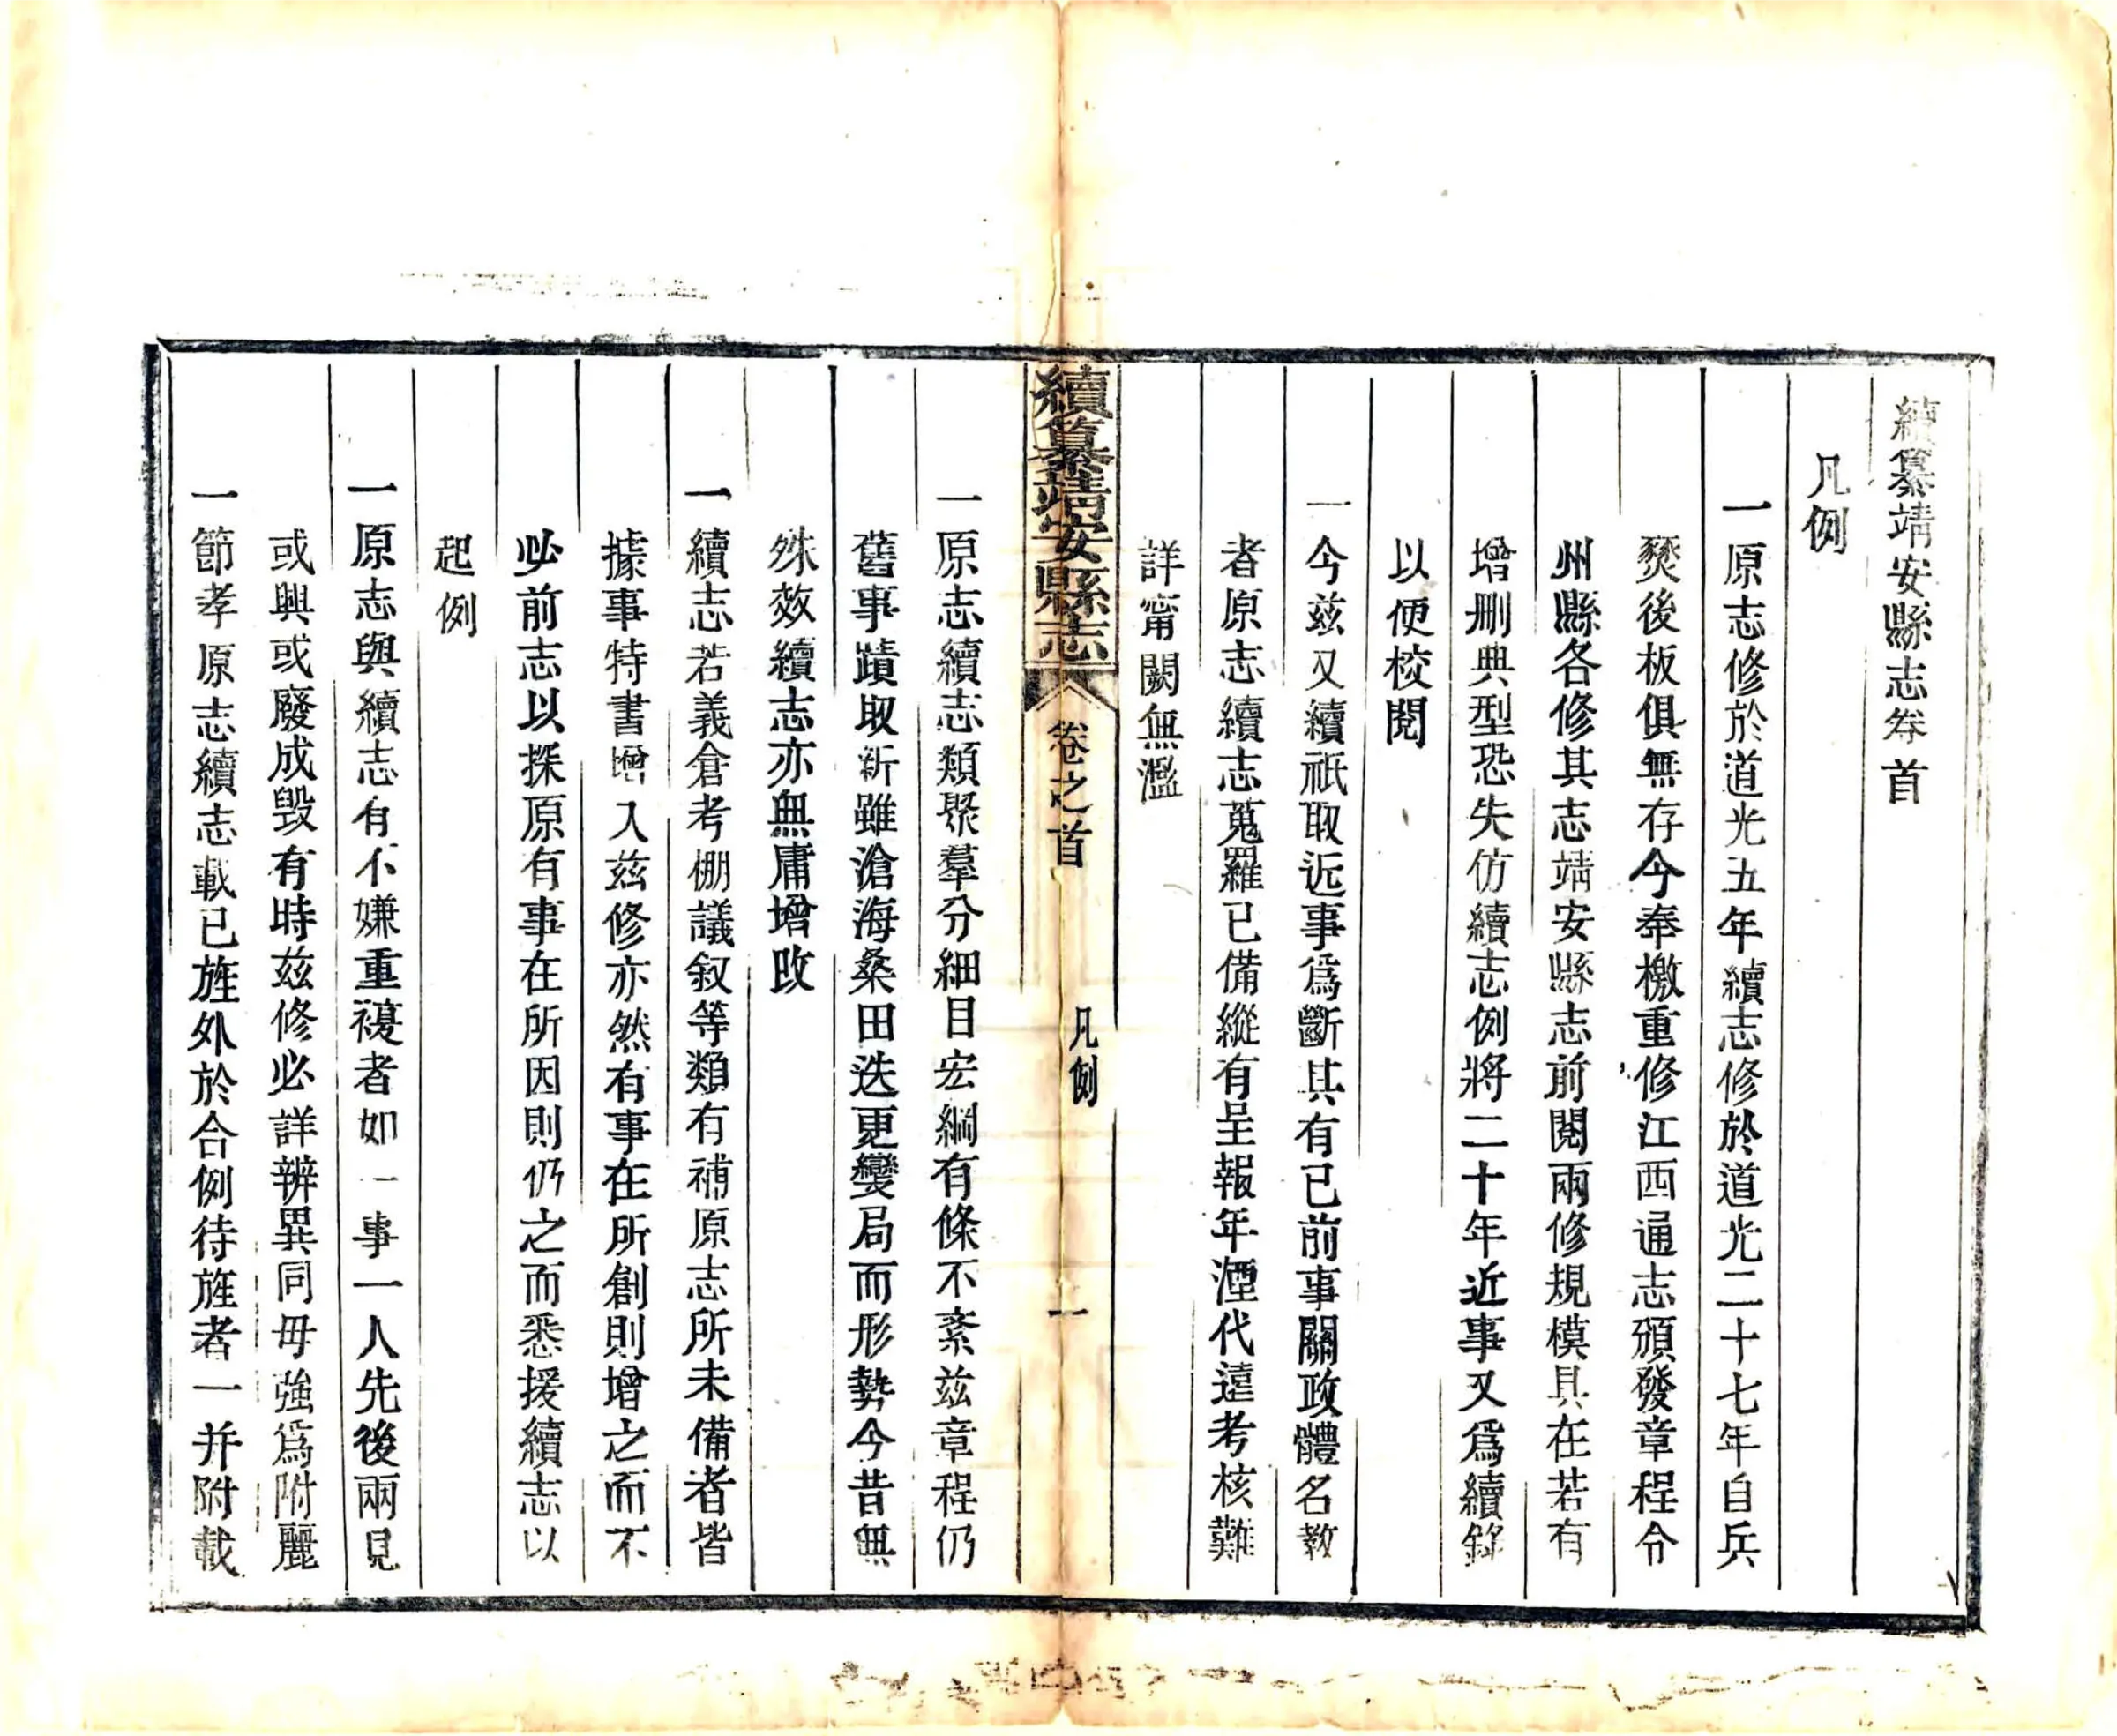 續纂靖安縣志卷首
凡例
一原志修於道光五年續志修於道光二十七年自兵
燹後板俱無存今奉檄重修江西通志頒發章程令
州縣各修其志靖安縣志前閱兩修規模具在若有
增删典型恐失仿續志例將二十年近事又爲續錄
以便校閱
一今兹又續祇取近事爲斷其有已前事關政體名教
者原志續志蒐羅已備縱有呈報年湮代遠考核難
詳甯闕無濫
續纂靖安縣志
卷之首
凡例
一
一原志續志類聚羣分細目宏綱有條不紊兹章程仍
舊事蹟取新雖滄海桑田迭更變局而形勢今昔無
殊效續志亦無庸增改
一續志若義倉考棚議叙等類有補原志所未備者皆
據事特書增入兹修亦然有事在所創則增之而不
必前志以探原有事在所因則仍之而悉援續志以
起例
一原志與續志有不嫌重複者如一事一人先後兩見
或興或廢成毁有時兹修必詳辨異同毋強爲附麗
一節孝原志續志載已旌外於合例待旌者一并附載